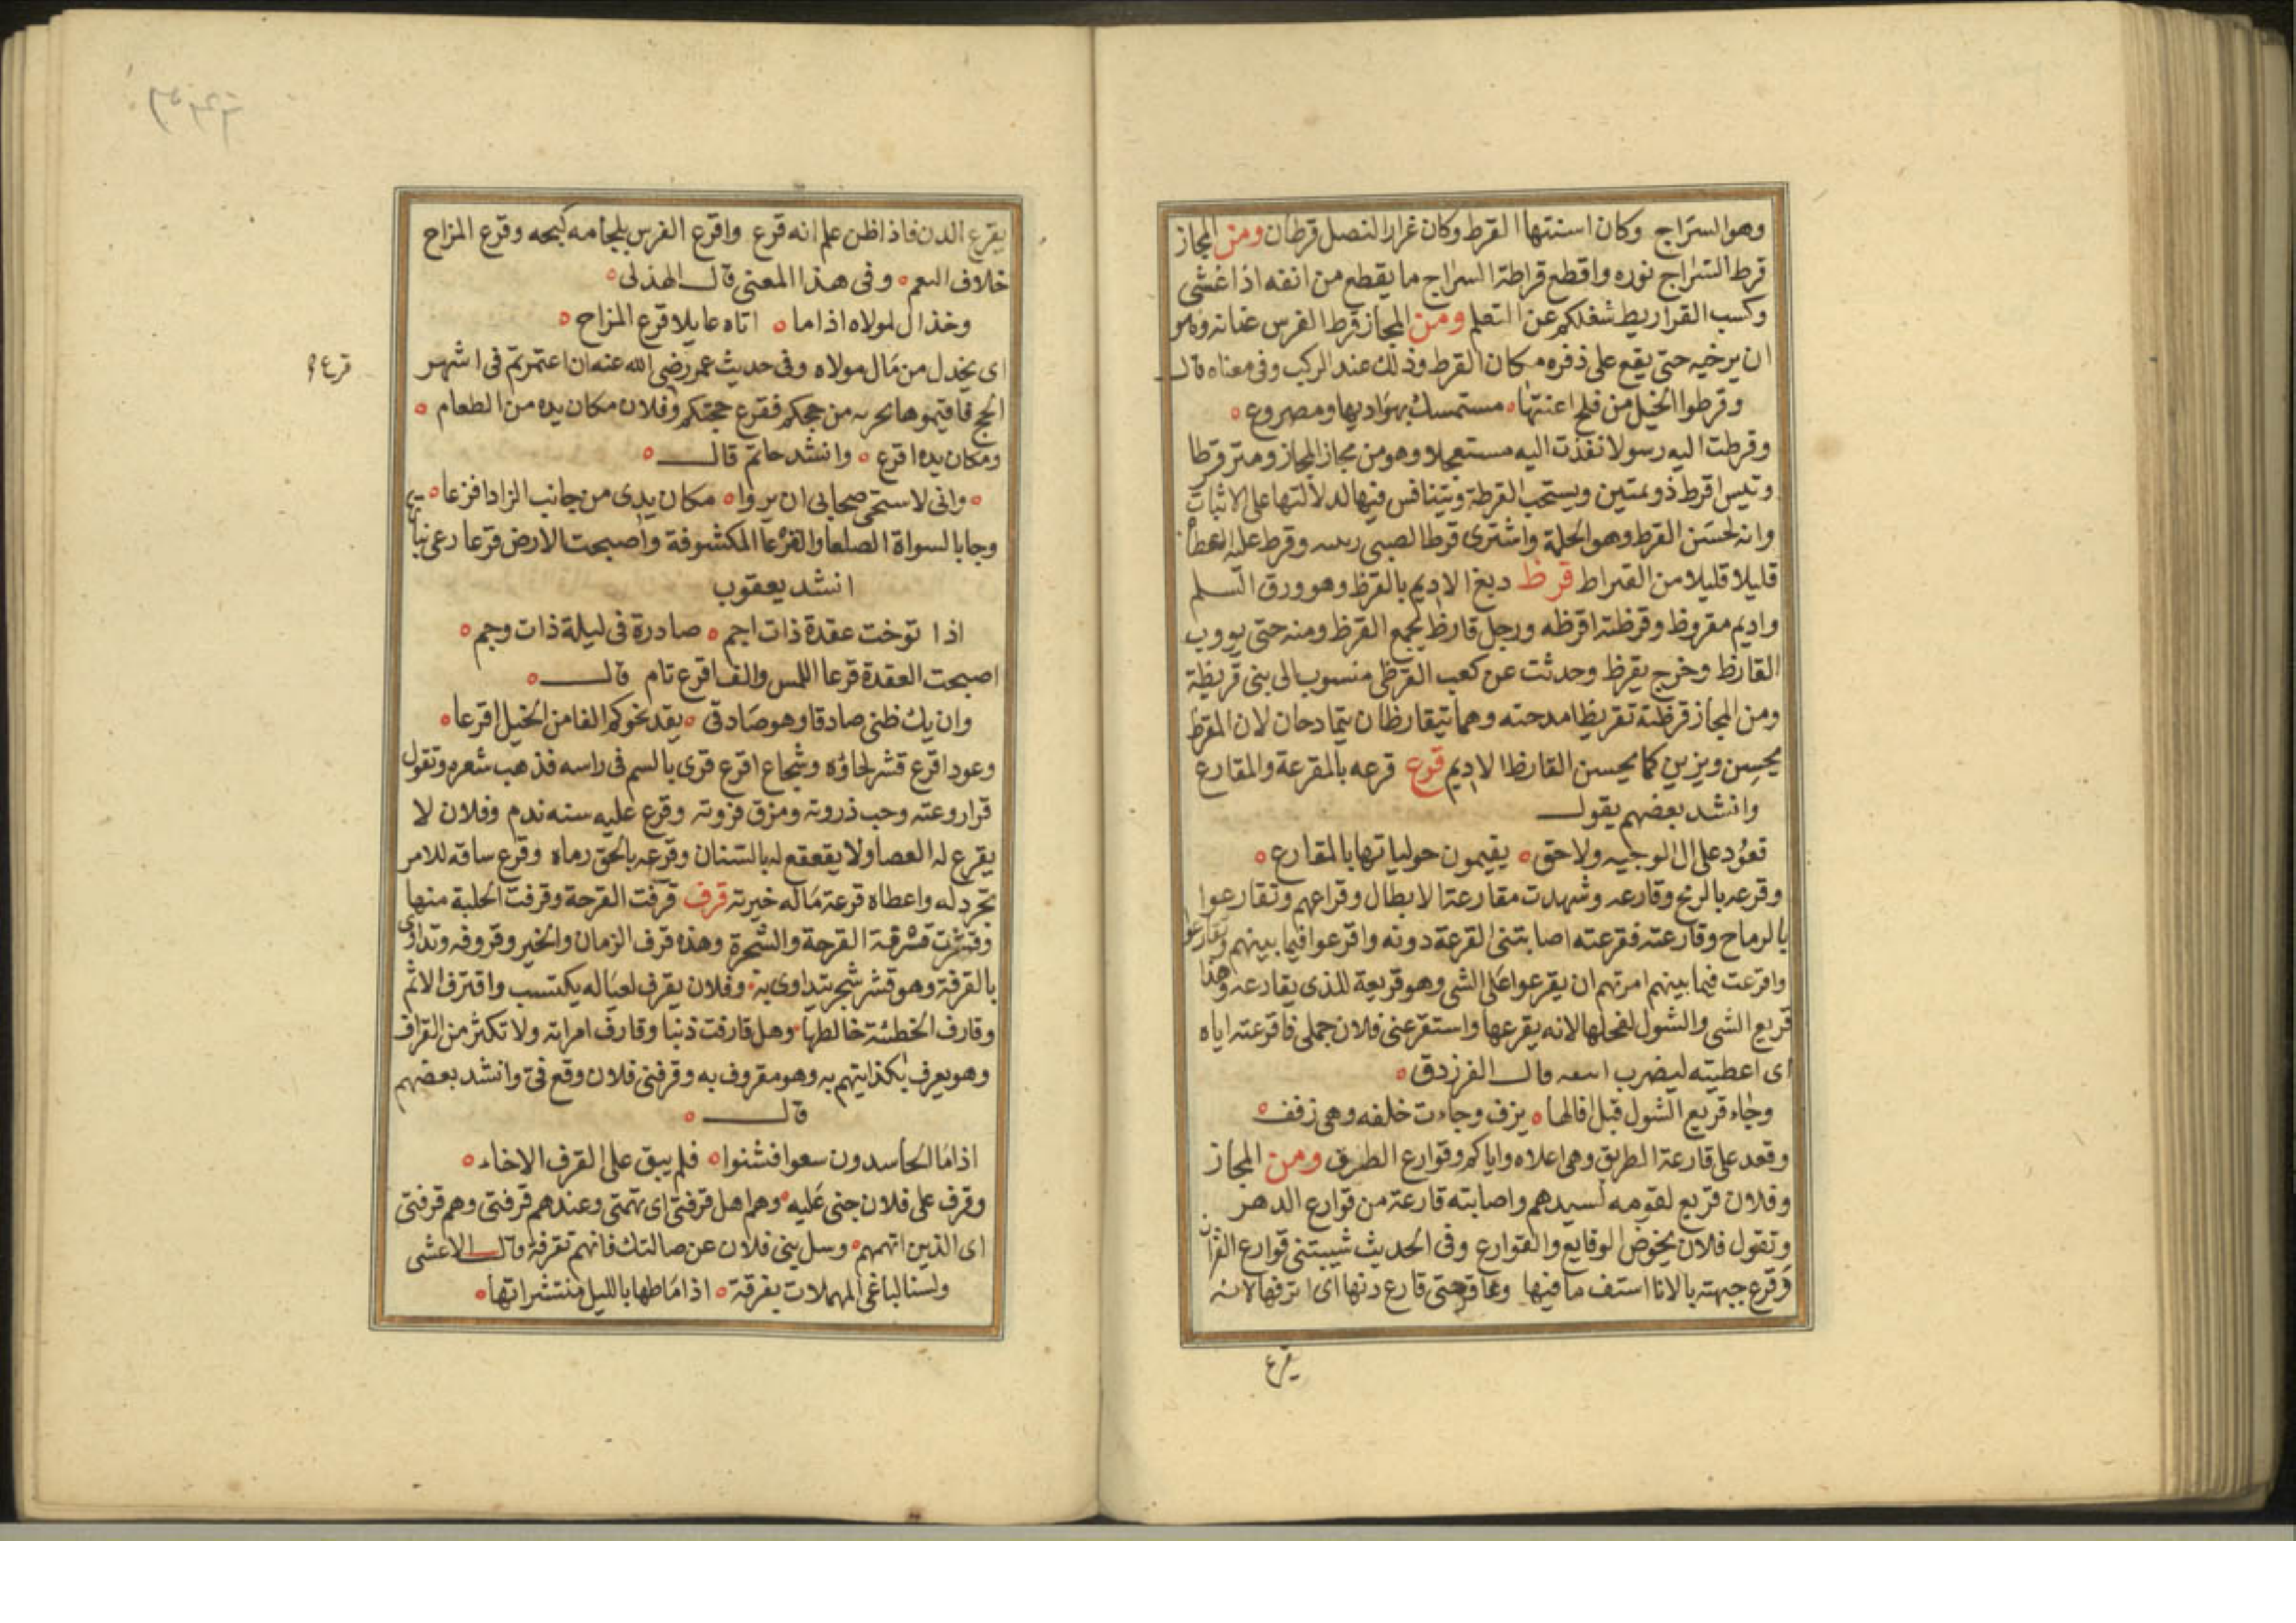 وهو السراج وكان اسنتها القرط وكان غرار النصل قرطان ومن المجاز
قرط السراج نوره واقطع قراطة السراج ما يقطع من انفه اذا غشى
وكسب القراريط شغلكم عن التعلم ومن المجاز قرط الفرس عنانه وهو
ان يرخيه حتى يقع على ذفره مكان القرط وذلك عند الركب وفى معناه قال
وقرطوا الخيل من فلح اعنتها مستمسك بهواديها ومصروع
وقرطت اليه رسولا نفذت اليه مستعجلا وهو من مجاز المجاز ومتر قرطا
وتيس اقرط ذو نمتين ويستحب القرطة ويتنافس فيها لدلالتها على الاثبات
وانه لحسن القرط وهو الحلمة واشترى قرطا لصبى وقرط عليه العطا
قليلا قليلا من القيراط قرظ دبغ الاديم بالقرظ وهو ورق السلم
واديم مقروظ وقرظته اقرظه ورجل قارظ يجمع القرظ ومنه حتى يووب
القارظ وخرج يقرظ وحدثت عن كعب القرظى منسوب الى بنى قريظة
ومن المجاز قرظته تقريظا مدحته وهما يتقارظان يتمادحان لان المقرظ
يحسن ويزين كما يحسن القارظ الاديم قرع قرعه بالمقرعة والمقارع
وانشد بعضهم يقول
تعود على ال الوجيه ولاحق يقيمون حولياتها بالمقارع
وقرعه بالرمح وقارعه وشهدت مقارعة الابطال وقراعهم وتقارعوا
بالرماح وقارعته فقرعته اصابتنى القرعة دونه واقرعوا فيما بينهم وتقارعوا
واقرعت فيما بينهم امرتهم ان يقرعوا على الشى وهو قريعة للذى يقارعه وهذا
قريع الشى والشول لفحلها لانه يقرعها واستقرعنى فلان جملى فاقرعته اياه
اى اعطيته ليضرب قال الفرزدق
وجاء قريع الشول قبل افالها يزف وجاءت خلفه وهى زفف
وقعد على قارعة الطريق وهى اعلاه واياكم وقوارع الطريق ومن المجاز
وفلان قريع لقومه لسيدهم واصابته قارعة من قوارع الدهر
وتقول فلان يخوض الوقايع والقوارع وفى الحديث شيبتنى قوارع القران
وقرع جبهته بالانا استف ما فيها وعاقر حتى قارع دنها اى انزفها لانه
يقرع
يقرع الدن فاذا طن علم انه قرع واقرع الفرس بلجامه كبحه وقرع المزاح
خلاف النعم وفى هذا المعنى قال الهذلى
وخذال لمولاه اذا ما اتاه عايلا قرع المزاح
اى يخذل من مال مولاه وفى حديث عمر رضى الله عنه ان اعتمرتم فى اشهر
قرع
الحج من حجكم فقرع حجتكم وفلان مكان يده من الطعام
ومكان يده اقرع وانشد حاتم قال
وانى لاستحى صحابى ان يروا مكان يدى من جانب الزاد اقرعا
وجا بالسواة الصلعا والقرعا المكشوفة واصبحت الارض قرعا رعى نباتها
انشد يعقوب
اذا توخت عقدة ذات اجم صادرة فى ليلة ذات وجم
اصبحت العقدة قرعا اللمس والف اقرع تام قال
وان يك ظنى صادقا وهو صادقى يقد نحوكم الفا من الخيل اقرعا
وعود اقرع قشر لحاؤه وشجاع اقرع قرى بالسم فى راسه فذهب شعره وتقول
وحب ذروته ومزق فروته وقرع عليه سنه ندم وفلان لا
يقرع له العصا ولا يقعقع له بالشنان وقرعه بالحق رماه وقرع ساقه للامر
تجرد له واعطاه قرعة ماله خيرته قرف قرفت القرحة وقرفت الجلبة منها
وقشرت قرفة القرحة والشجرة وهذه قرف الرمان والخبز وقروفه وتداوى
بالقرفة وهو قشر شجر يتداوى به وفلان يقرف لعياله يكتسب واقترف الاثم
وقارف الخطئة خالطها وهل قارفت ذنبا وقارف امراته ولا تكثر من القراف
وهو يعرف بكذا يتهم به وهو مقروف به وقرفنى فلان وقع فى وانشد بعضهم
قال
اذا ما الحاسدون سعوا فشنوا فلم يبق على القرف الاخاء
وقرف على فلان جنى عليه وهم اهل قرفتى اى تهمتى وعندهم قرفتى وهم قرفتى
اى الذين اتهمهم وسل بنى فلان عن ضالتك فانهم قرفة قال الاعشى
ولسنا لباغى المهملات بقرفة اذا ما طها بالليل منتشراتها